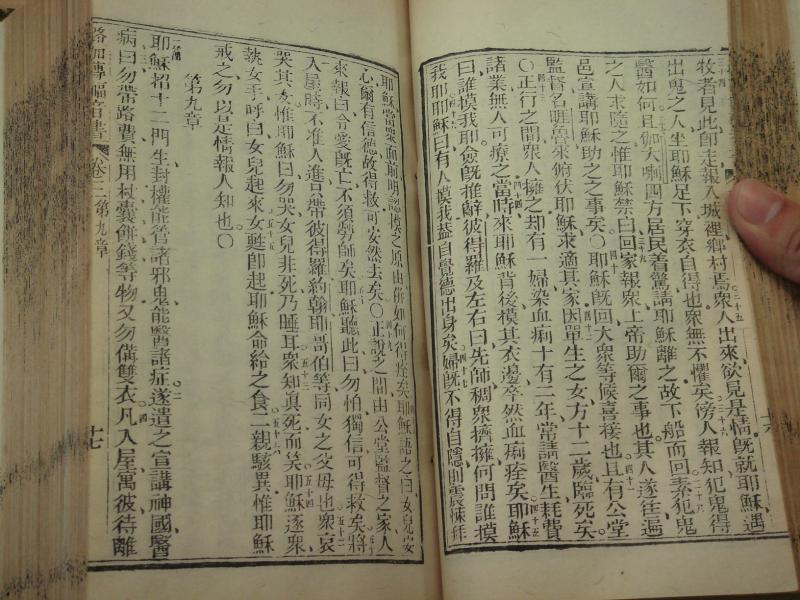 牧者見此卽走報入城裡鄉村焉衆人出來欲見是情旣就耶穌遇
出鬼之人坐耶穌足下穿衣自得也衆無不懼矣傍人報知犯鬼得
醫如何且伽大喇四方居民着驚請耶穌離之故下船而回素犯鬼
之人求隨之惟耶穌禁曰回家報衆上帝助爾之事也其人遂往遍
邑宣講耶穌助之之事矣〇耶穌旣回大衆等候喜接也且有公堂
監督名睚魯來俯伏耶穌求適其家因單生之女方十二歲臨死矣
〇正行之間衆人擁之却有一婦染血痢十有二年常請醫生耗費
諸業無人可療之當時來耶穌背後摸其衣邊卒然血痢痊矣耶穌
曰誰摸我耶僉旣推辭彼得羅及左右曰先師稠衆擠擁何問誰摸
我耶耶穌曰有人摸我葢自覺德出身矣婦旣不得自隱則震悚拜
耶穌當衆面前明認摸之原由併如何得痊矣耶穌語之曰女兒安
心爾有信德故得救可安然去矣〇正說之間由公堂監督之家人
來報曰令愛旣亡不須勞師矣耶穌聽此曰勿怕獨信可得救矣將
入屋時不准人進只帶彼得羅約翰耶哥伯等同女之父母也衆哀
哭其女惟耶穌曰勿哭女兒非死乃睡耳衆知眞死而笑耶穌逐衆
執女手呼曰女兒起來女甦卽起耶穌命給之食二親駭異惟耶穌
戒之勿以是情報人知也〇
第九章
耶穌招十二門生封權能管諸邪鬼能醫諸症遂遣之宣講神國醫
病曰勿帶路費無用杖囊餅錢等物又勿備雙衣凡入屋寓彼待離
路加傳福音書 卷三 第九章 十七